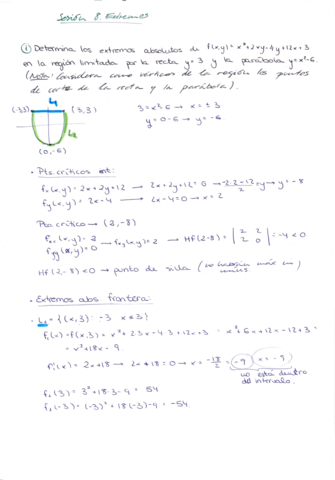 Sesión 8. Extremos
① Determina los extremos absolutos de f(x,y) = x²+2xy-4y+12x+3
en la región limitada por la recta y=3 y la parábola y=x²-6.
(Nota: Considera como vértices de la región los puntos
de corte de la recta y la parábola).
(-3,3) L₁ (3,3)
L₂
(0,-6)
3=x²-6 → x=±3
y=0-6 → y=-6
• Pts críticos int:
fx(x,y) = 2x+2y+12 → 2x+2y+12=0 → y=-8
fy(x,y) = 2x-4 → 2x-4=0 → x=2
Pto crítico → (2,-8)
fxx(x,y) = 2
fyy(x,y) = 0
fxy(x,y) = 2 → Hf(2,-8) = | 2 2 |
| 2 0 | = -4 < 0
Hf(2,-8) < 0 → punto de silla
• Extremos abs. frontera:
· L₁ = {(x,3): -3 x≤3}
f₁(x) = f(x,3) = x²+2·3x-4·3+12x+3 = x²+6x+12x-12+3 =
= x²+18x-9
f₁'(x) = 2x+18 → 2x+18=0 → x = -18/2 = -9 x=-9
no está dentro
del intervalo.
f₁(3) = 3²+18·3-9 = 54
f₁(-3) = (-3)²+18(-3)-9 = -54